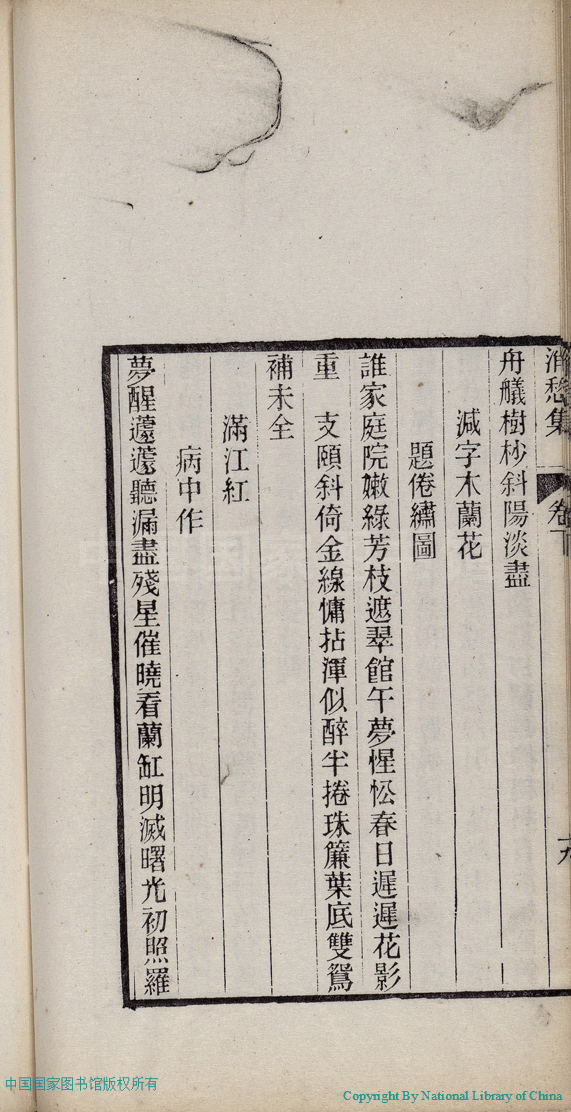 消愁集
卷下
十九
舟艤樹杪斜陽淡盡
減字木蘭花
題倦繡圖
誰家庭院嫩綠芳枝遮翠館午夢惺忪春日遲遲花影
重　支頤斜倚金線慵拈渾似醉半捲珠簾葉底雙鴛
補未全
滿江紅
病中作
夢醒蘧蘧聽漏盡殘星催曉看蘭缸明滅曙光初照羅
中国国家图书馆版权所有
Copyright By National Library of China